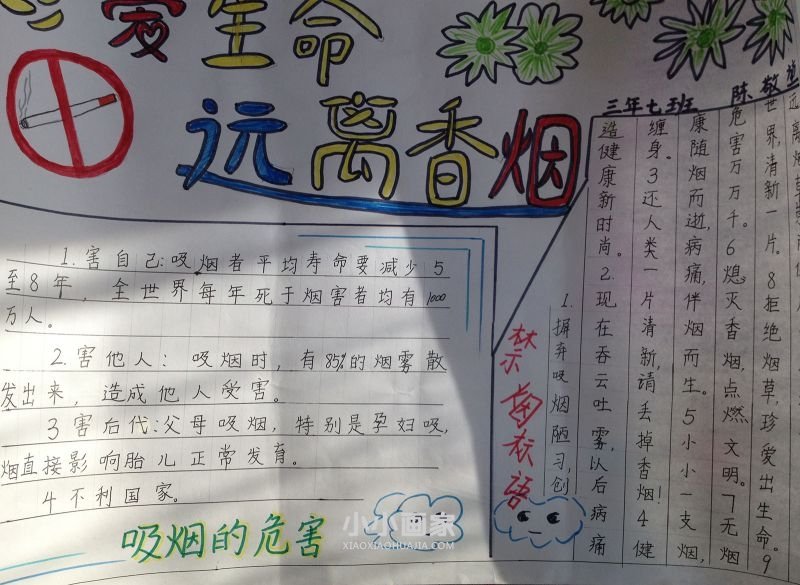 爱生命
远离香烟
三年七班 陈敬
1.害自己:吸烟者平均寿命要减少5
至8年，全世界每年死于烟害者均有1000
万人。
2.害他人：吸烟时，有85%的烟雾散
发出来，造成他人受害。
3害后代:父母吸烟，特别是孕妇吸，
烟直接影响胎儿正常发育。
4不利国家。
吸烟的危害
禁烟标语
1.摒弃吸烟陋习,创
造健康新时尚。2.现在吞云吐雾,以后病痛
缠身。3还人类一片清新,请丢掉香烟!4健
康随烟而逝,病痛伴烟而生。5小小一支烟,
危害万万千。6熄灭香烟,点燃文明。7无烟
世界,清新一片。8拒绝烟草,珍爱出生命。9
远离烟草
小小画家
XIAOXIAOHUAJIA.COM